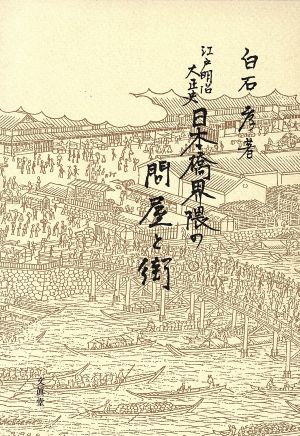 白石 孝著
江戸明治
大正史
日本橋界隈の
問屋と街
文眞堂